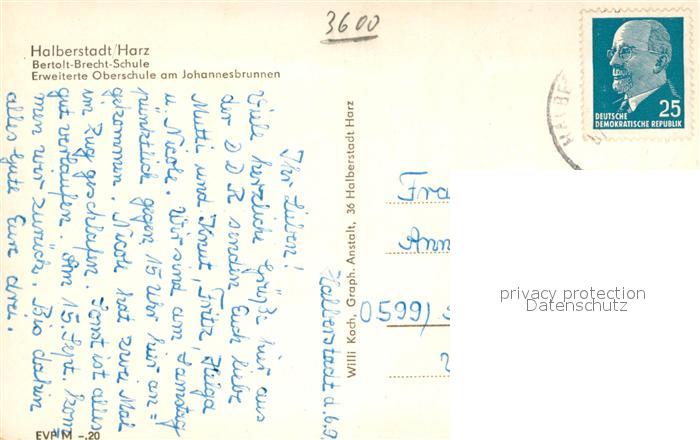 3600
Halberstadt/Harz
Bertolt-Brecht-Schule
Erweiterte Oberschule am Johannesbrunnen
25
DEUTSCHE
DEMOKRATISCHE REPUBLIK
HALBE
Halberstadt d. 6.9.
Ihr Lieben!
Viele herzliche Grüße hier aus
der DDR senden Euch liebe
Mutti und Knut, Fritz, Helga
u. Nicole. Wir sind am Samstag
pünktlich gegen 15 Uhr hier an=
gekommen. Nicole hat zwei Mal
im Zug geschlafen. Sonst ist alles
gut verlaufen. Am 15. Sept. kom=
men wir zurück. Bis dahin
alles Gute Eure drei.
EVP M -.20
Willi Koch, Graph. Anstalt, 36 Halberstadt Harz
Fra
Ann
0599)
privacy protection
Datenschutz